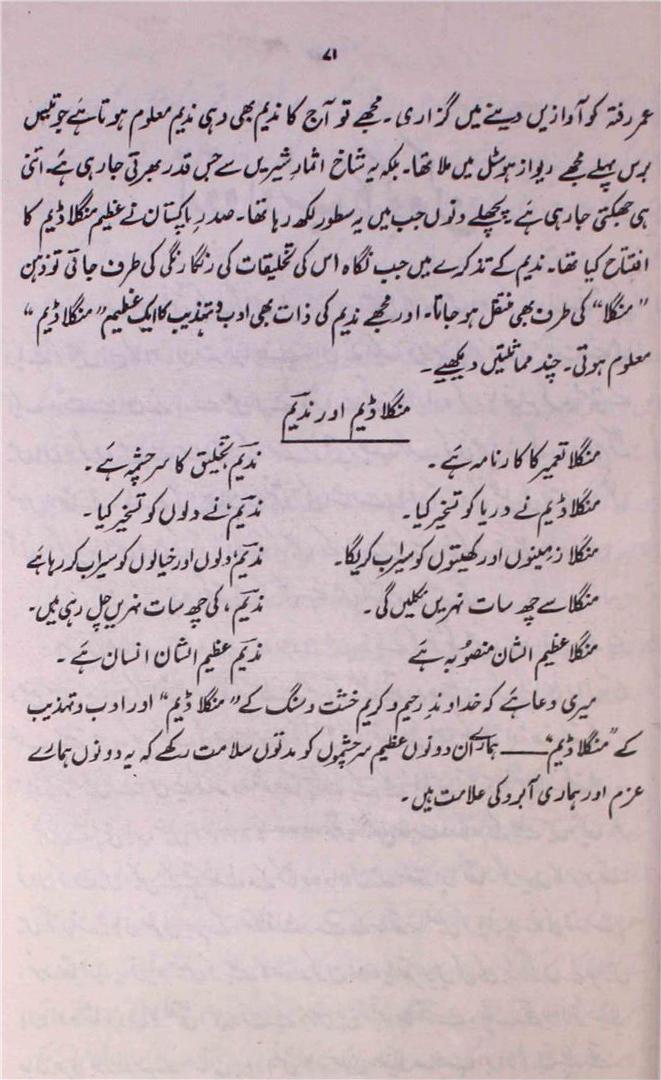 ۷۱
عمر رفتہ کو آوازیں دینے میں گزاری۔ مجھے تو آج کا ندیم بھی وہی ندیم معلوم ہوتا ہے جو تیس
برس پہلے مجھے ریواز ہوسٹل میں ملا تھا۔ بلکہ یہ شاخ اثمار شیریں سے جس قدر بھرتی جا رہی ہے۔ اتنی
ہی جھکتی جا رہی ہے پچھلے دنوں جب میں یہ سطور لکھ رہا تھا۔ صدر پاکستان نے عظیم منگلا ڈیم کا
افتتاح کیا تھا۔ ندیم کے تذکرے میں جب نگاہ اس کی تخلیقات کی رنگا رنگی کی طرف جاتی تو ذہن
”منگلا“ کی طرف بھی منتقل ہو جاتا۔ اور مجھے ندیم کی ذات بھی ادب و تہذیب کا ایک عظیم ”منگلا ڈیم“
معلوم ہوتی۔ چند مماثلتیں دیکھیے۔
منگلا ڈیم اور ندیم
منگلا تعمیر کا کارنامہ ہے۔ ندیم تخلیق کا سرچشمہ ہے۔
منگلا ڈیم نے دریا کو تسخیر کیا۔ ندیم نے دلوں کو تسخیر کیا۔
منگلا زمینوں اور کھیتوں کو سیراب کریگا۔ ندیم دلوں اور خیالوں کو سیراب کر رہا ہے
منگلا سے چھ سات نہریں نکلیں گی۔ ندیم، کی چھ سات نہریں چل رہی ہیں۔
منگلا عظیم الشان منصوبہ ہے ندیم عظیم الشان انسان ہے۔
میری دعا ہے کہ خداوند رحیم و کریم خشت و سنگ کے ”منگلا ڈیم“ اور ادب و تہذیب
کے ”منگلا ڈیم“ —— ہمارے ان دونوں عظیم سرچشموں کو مدتوں سلامت رکھے کہ یہ دونوں ہمارے
عزم اور ہماری آبرو کی علامت ہیں۔